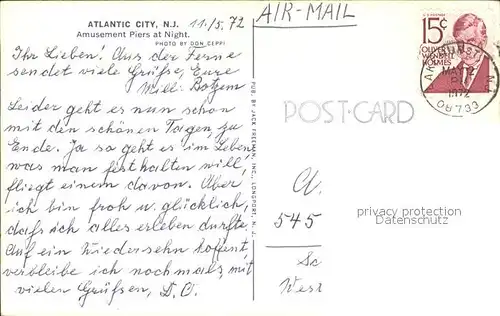 ATLANTIC CITY, N.J. 11./5.72
Amusement Piers at Night.
PHOTO BY DON CEPPI
AIR-MAIL
15¢
OLIVER
WENDELL
HOLMES
MAY 12
PM
1972
Ihr Lieben! Aus der Ferne
sendet viele Grüße, Eure
Willi Botzem
Leider geht es nun schon
mit den schönen Tagen, zu
Ende. Ja so geht es im Leben,
was man festhalten will,
fliegt einem davon. Aber
ich bin froh u. glücklich,
daß ich alles erleben durfte.
Auf ein Wiedersehn hoffent,
verbleibe ich nochmals, mit
vielen Grüßen, D. O.
PUB. BY JACK FREEMAN, INC., LONGPORT, N. J.
POST CARD
545
West
privacy protection
www.ansichtskarten-center.de